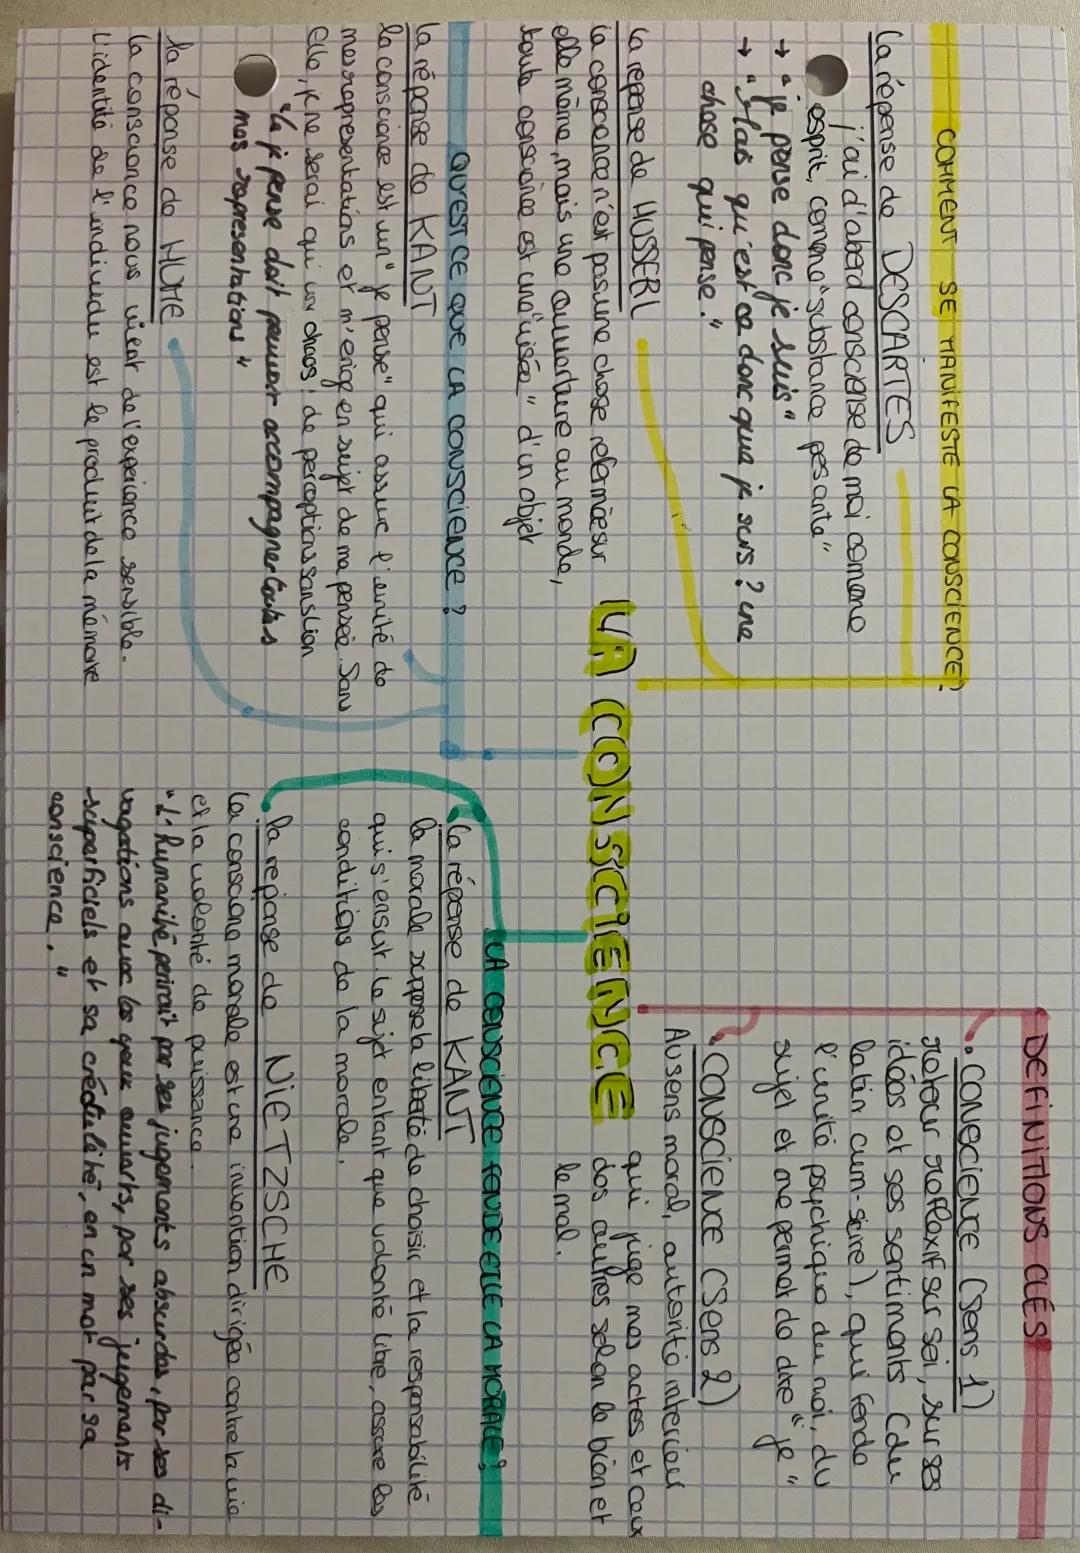 LA CONSCIENCE
COMMENT SE MANIFESTE LA CONSCIENCE?
La réponse de DESCARTES
j'ai d'abord conscience de moi comme
esprit, comme "substance pesante"
→ "je pense donc je suis"
→ "Mais qu'est ce donc que je suis? une
chose qui pense."
La réponse de HUSSERL
la conscience n'est pas une chose refermée sur
elle même, mais une ouverture au monde,
toute conscience est une "visée" d'un objet
QU'EST CE QUE LA CONSCIENCE?
La réponse de KANT
la conscience est un "je pense" qui assure l'unité de
mes representations et m'erige en sujet de ma pensée. Sans
Elle, je ne serai qu'un chaos de perceptions sans lien
"Le je pense doit pouvoir accompagner toutes
mes representations"
la réponse de HUME
la conscience nous vient de l'experience sensible.
L'identité de l'individu est le produit de la mémoire
DEFINITIONS CLÉS
• CONSCIENCE (sens 1)
retour reflexif sur soi, sur ses
idées et ses sentiments (du
latin cum-scire), qui fonde
l'unité psychique du moi, du
sujet et me permet de dire "je"
• CONSCIENCE (sens 2)
Au sens moral, autorité interieur
qui juge mes actes et ceux
des autres selon le bien et
le mal.
LA CONSCIENCE FONDE ELLE LA MORALE?
La réponse de KANT
la morale suppose la liberté de choisir et la responsabilité
qui s'ensuit. le sujet entant que volonté libre, assure les
conditions de la morale.
la reponse de NIETZSCHE
la conscience morale est une invention dirigée contre la vie
et la volonté de puissance.
"L'humanité perirait par ses jugements absurdes, par ses di-
vagations avec les yeux ouverts, par ses jugements
superficiels et sa crédulité, en un mot par sa
conscience."